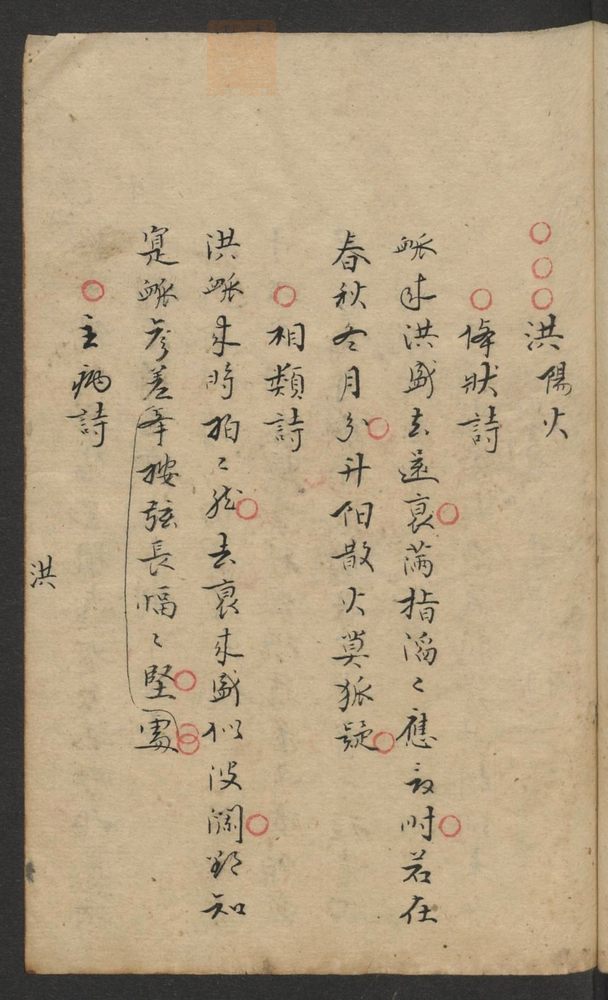 洪陽火
体状詩
脈來洪盛去還衰滿指滔〻應夏时若在
春秋冬月分升阳散火莫狐疑
相類詩
洪脈来時拍〻然去衰来盛似波瀾欲知
寔脈参差举按弦長愊〻堅處
主病詩
洪